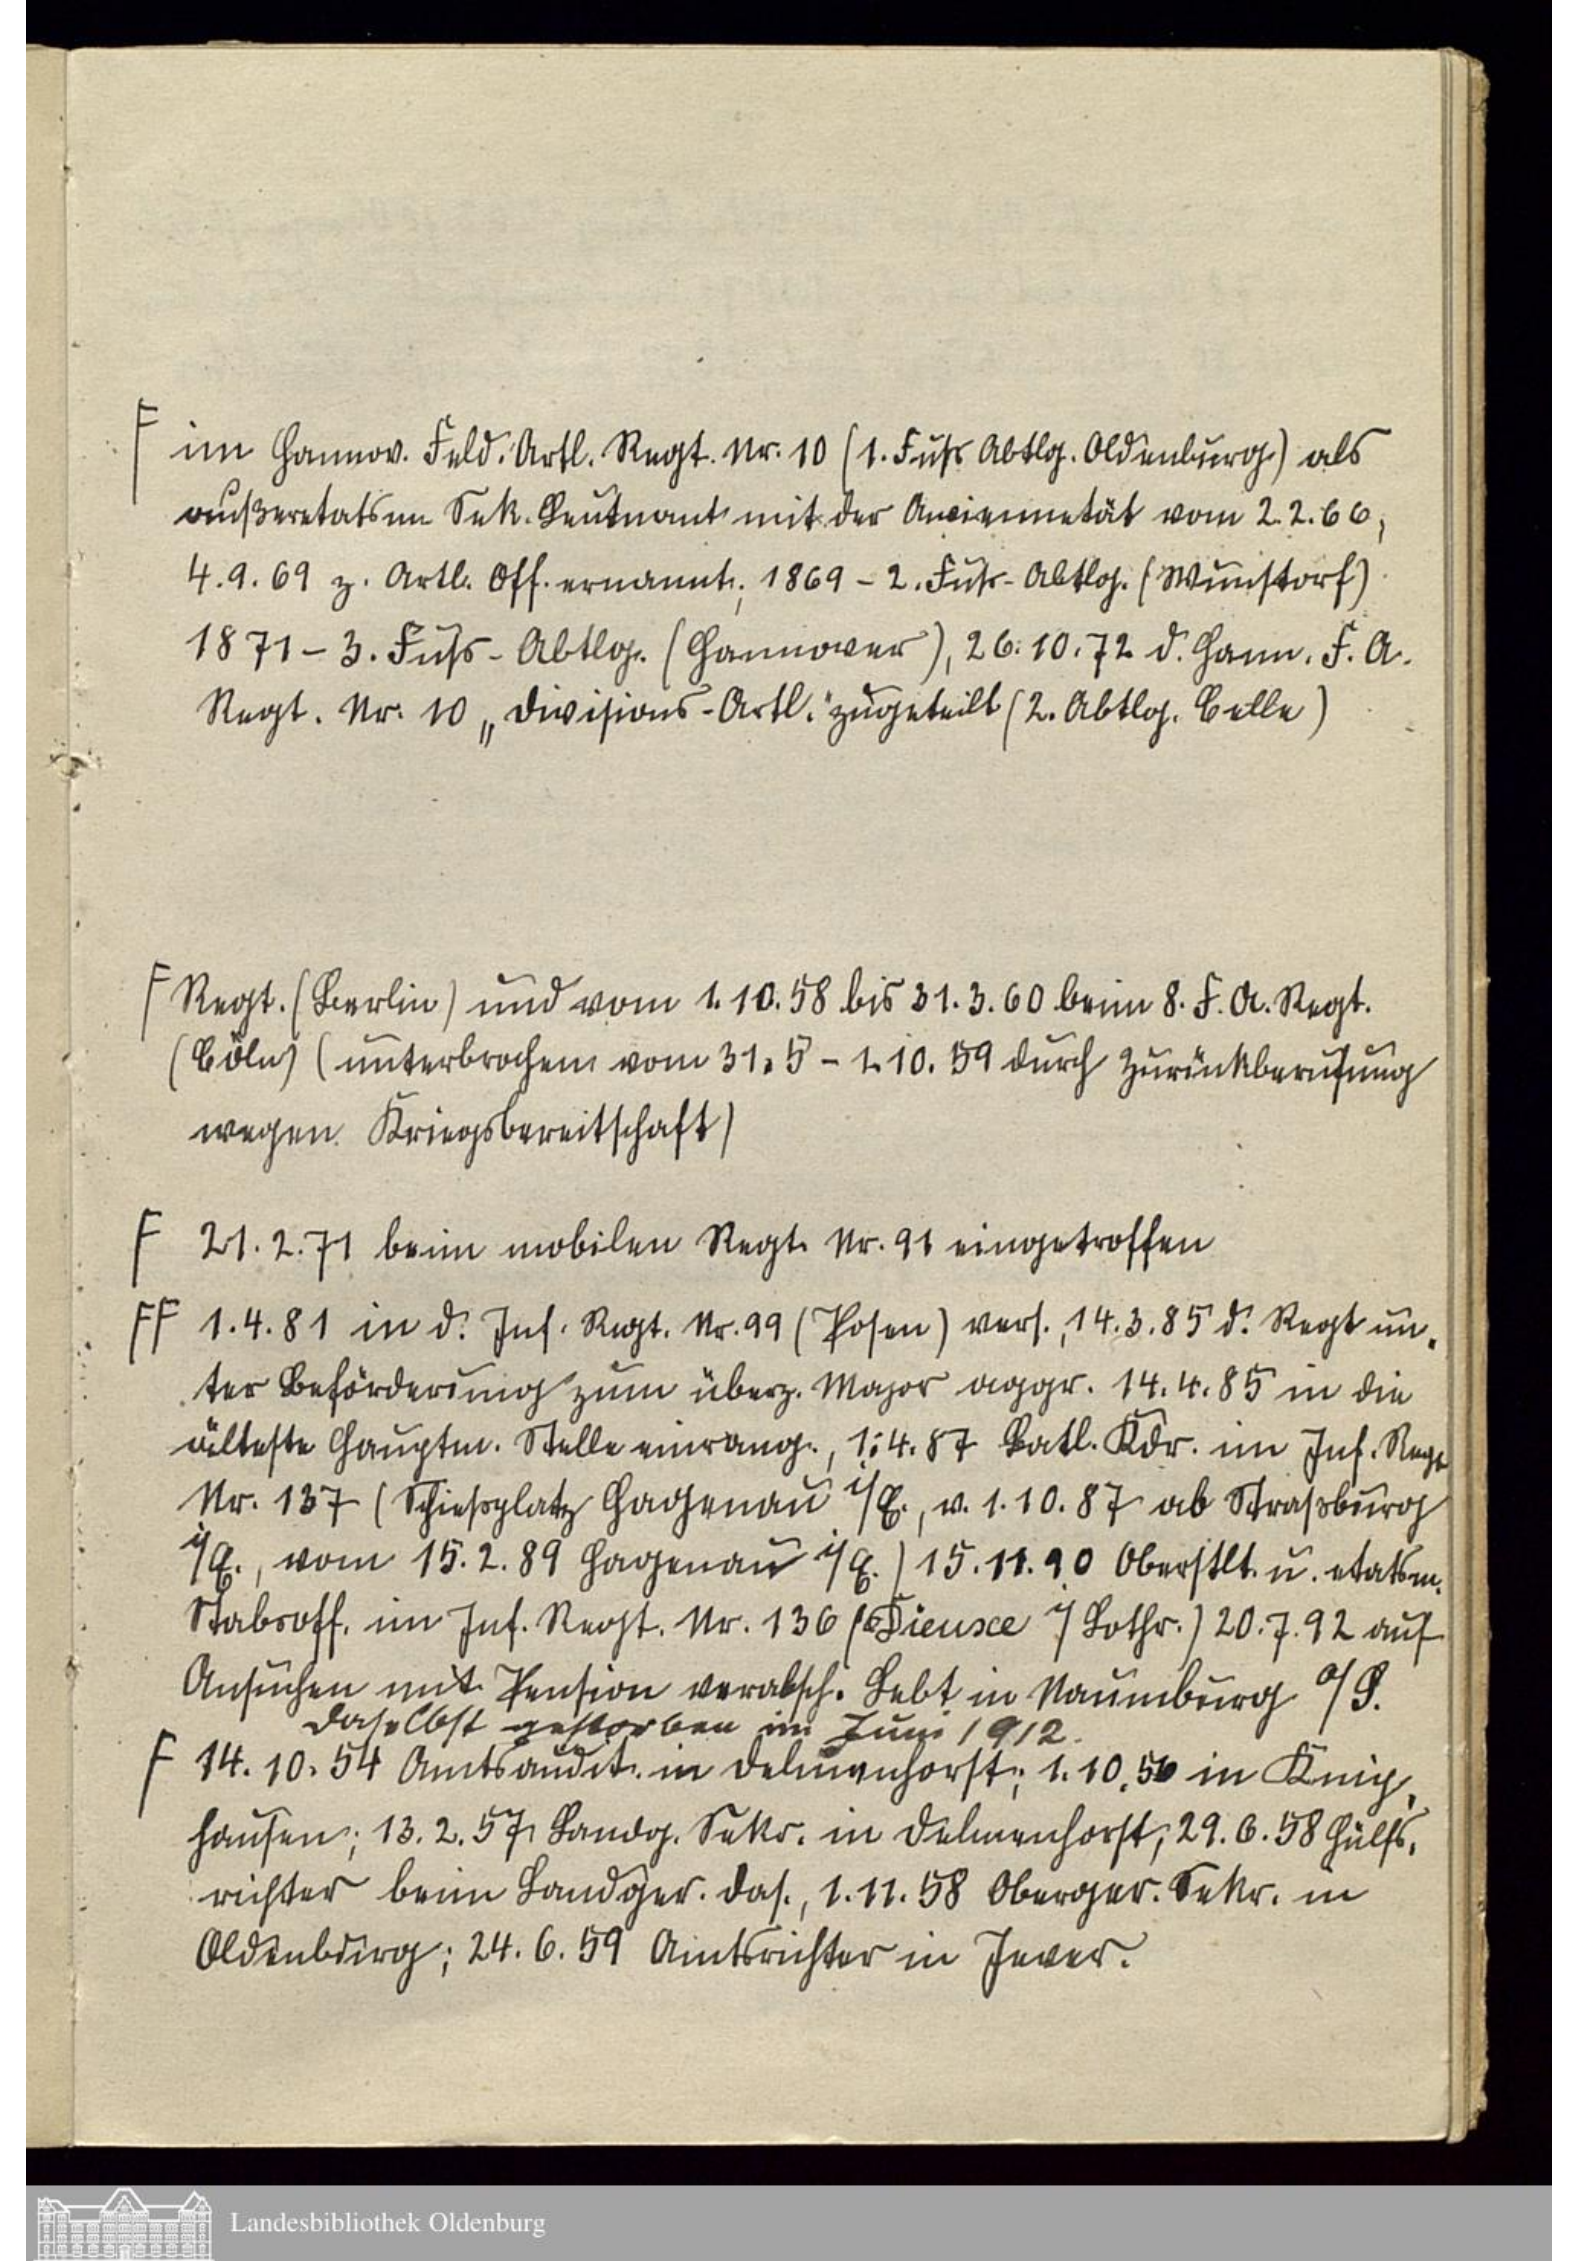 F im Hannov. Feld. Artl. Regt. Nr. 10 (1. Fuß Abtlg. Oldenburg) als
außeretatsm Sek. Leutnant mit der Anciennetät vom 2.2.66,
4.9.69 z. Artl. Off. ernannt; 1869 - 2. Fuß-Abtlg. (Wunstorf)
1871 - 3. Fuß-Abtlg. (Hannover), 26.10.72 d. Hann. F. A.
Regt. Nr. 10 „Divisions-Artl." zugeteilt (2. Abtlg. Celle)
F Regt. (Berlin) und vom 1.10.58 bis 31.3.60 beim 8. F. A. Regt.
(Cöln) (unterbrochen vom 31.5 - 1.10.59 durch Zurückberufung
wegen Kriegsbereitschaft)
F 21.2.71 beim mobilen Regt. Nr. 91 eingetroffen
FF 1.4.81 in d. Inf. Regt. Nr. 99 (Posen) vers., 14.3.85 d. Regt un-
ter Beförderung zum überz. Major aggr. 14.4.85 in die
älteste Hauptm. Stelle einrang., 1.4.87 Batl. Kdr. im Inf. Regt
Nr. 137 (Schießplatz Hagenau i/E., v. 1.10.87 ab Straßburg
i/E., vom 15.2.89 Hagenau i/E.) 15.11.90 Oberstlt. u. etatsm.
Stabsoff. im Inf. Regt. Nr. 136 (Dieuxe i/Lothr.) 20.7.92 auf
Ansuchen mit Pension verabsch. Lebt in Naumburg a/S.
daselbst gestorben im Juni 1912.
F 14.10.54 Amtsaudit. in Delmenhorst; 1.10.56 in Knip-
hausen; 13.2.57 Landg. Sekr. in Delmenhorst; 29.6.58 Hülfs-
richter beim Landger. das., 1.11.58 Oberger. Sekr. in
Oldenburg; 24.6.59 Amtsrichter in Jever.
Landesbibliothek Oldenburg